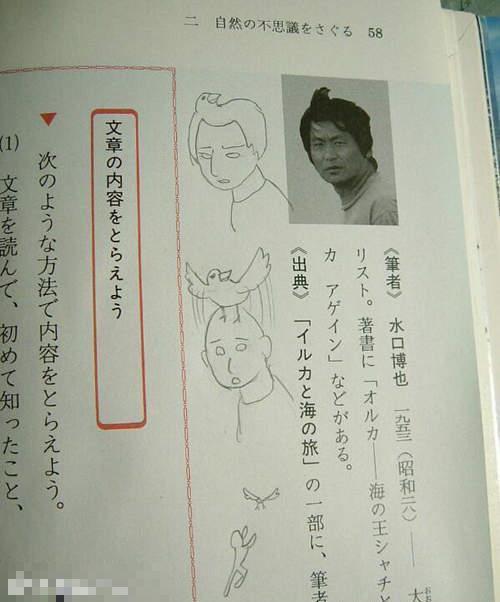 二 自然の不思議をさぐる 58
《筆者》 水口博也 一九五三(昭和二八)―― 大
おお
リスト。著書に「オルカ――海の王シャチと
カ アゲイン」などがある。
《出典》 「イルカと海の旅」の一部に、筆者
文章の内容をとらえよう
▼ 次のような方法で内容をとらえよう。
(1) 文章を読んで、初めて知ったこと、